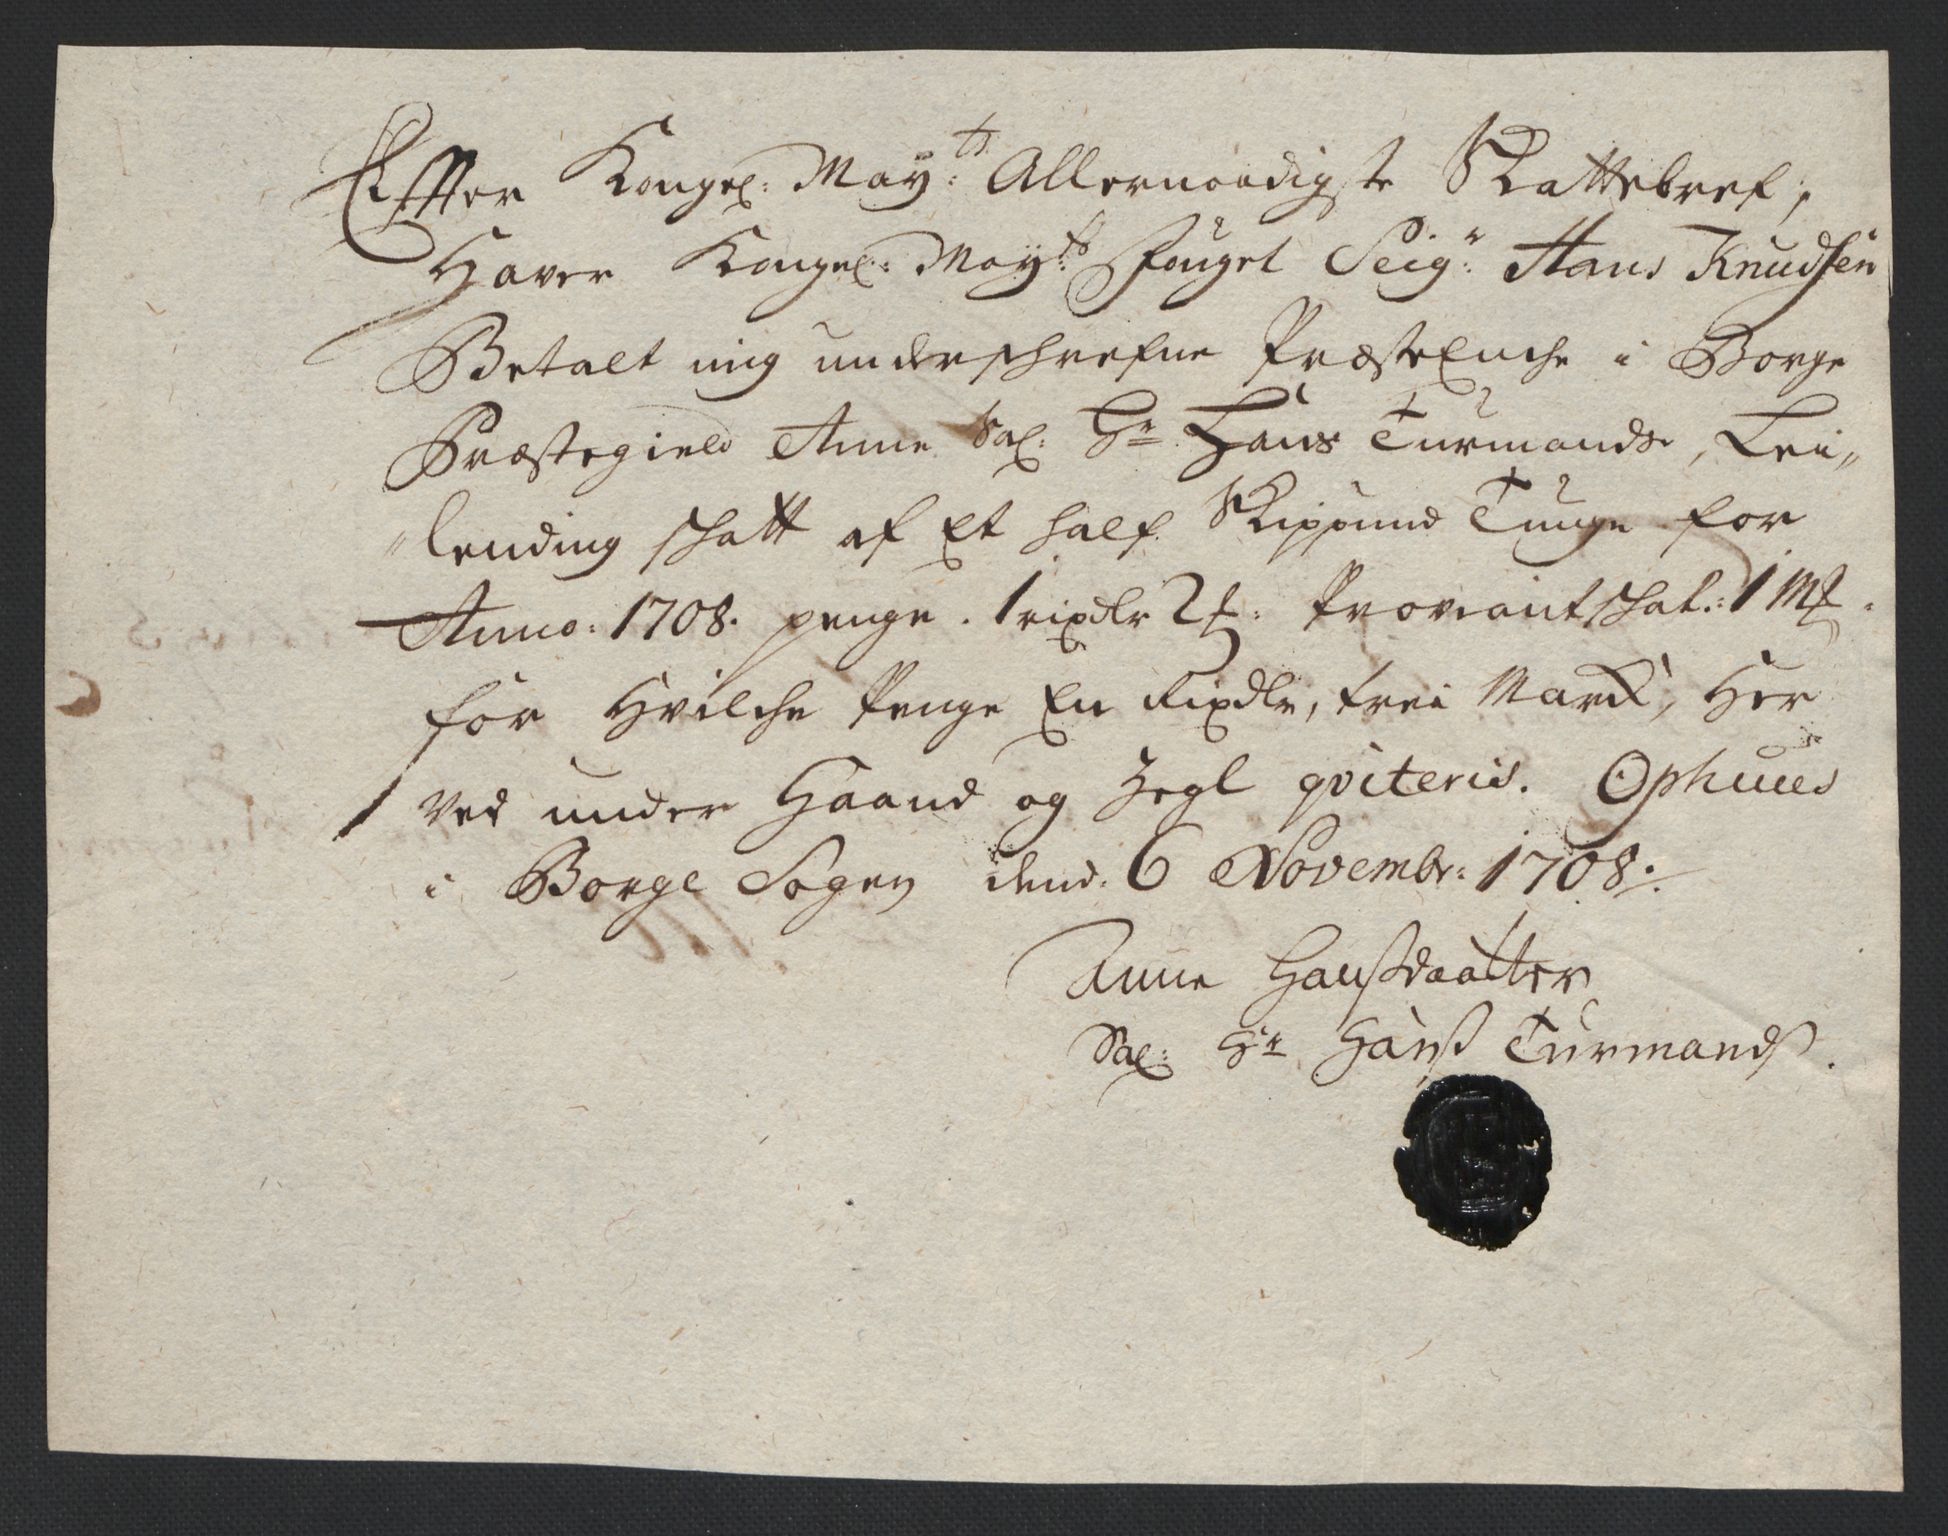 Effter Kongel: Mayts: Allernaadigste Skattebref,
Haver Kongel: Mayts: Fouget Seigr: Hans Knudsen
Betalt mig underschrefne Præstelnche i Borge
Præstegield Anne Sal: Hr Hans Turmands, Lei„
„lending schatt af Et half Skippund Tunge for
Anno: 1708. penge. 1 rixdlr 2 ƒ: Proviantschat: 1 Mƒ.
for Hvilche Penge En Rixdlr, trei Marck, Her
Ved under Haand og Zegl qviteris. Ophuus
i Borge Sogen dend. 6 Novembr: 1708.
Anne Hanßdaatter
Sal: Hr Hanß Turmandß.